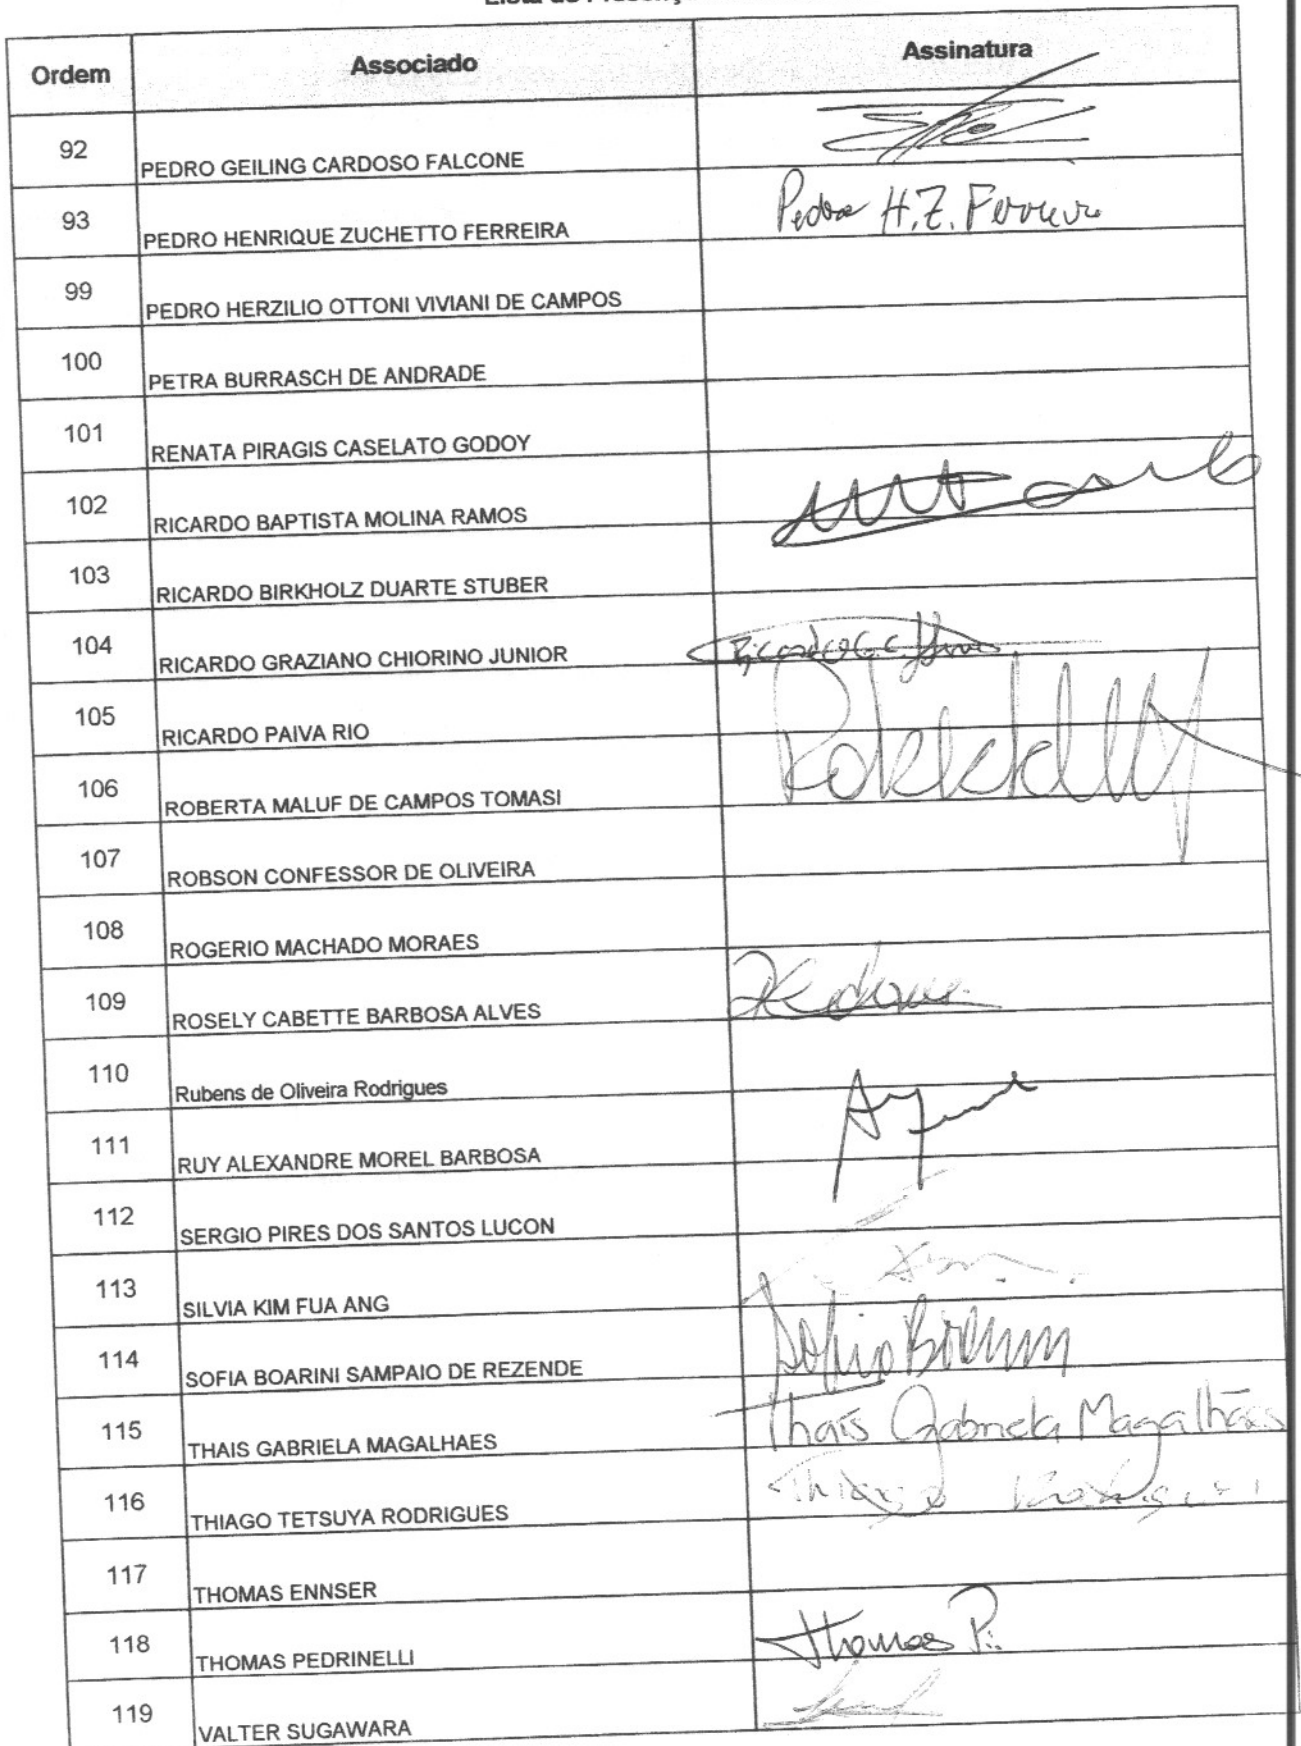 Ordem Associado Assinatura
92 PEDRO GEILING CARDOSO FALCONE
93 PEDRO HENRIQUE ZUCHETTO FERREIRA Pedro H.Z. Ferreira
99 PEDRO HERZILIO OTTONI VIVIANI DE CAMPOS
100 PETRA BURRASCH DE ANDRADE
101 RENATA PIRAGIS CASELATO GODOY
102 RICARDO BAPTISTA MOLINA RAMOS
103 RICARDO BIRKHOLZ DUARTE STUBER
104 RICARDO GRAZIANO CHIORINO JUNIOR
105 RICARDO PAIVA RIO
106 ROBERTA MALUF DE CAMPOS TOMASI
107 ROBSON CONFESSOR DE OLIVEIRA
108 ROGERIO MACHADO MORAES
109 ROSELY CABETTE BARBOSA ALVES
110 Rubens de Oliveira Rodrigues
111 RUY ALEXANDRE MOREL BARBOSA
112 SERGIO PIRES DOS SANTOS LUCON
113 SILVIA KIM FUA ANG
114 SOFIA BOARINI SAMPAIO DE REZENDE
115 THAIS GABRIELA MAGALHAES Thais Gabriela Magalhães
116 THIAGO TETSUYA RODRIGUES Thiago Rodrigues
117 THOMAS ENNSER
118 THOMAS PEDRINELLI Thomas P.
119 VALTER SUGAWARA